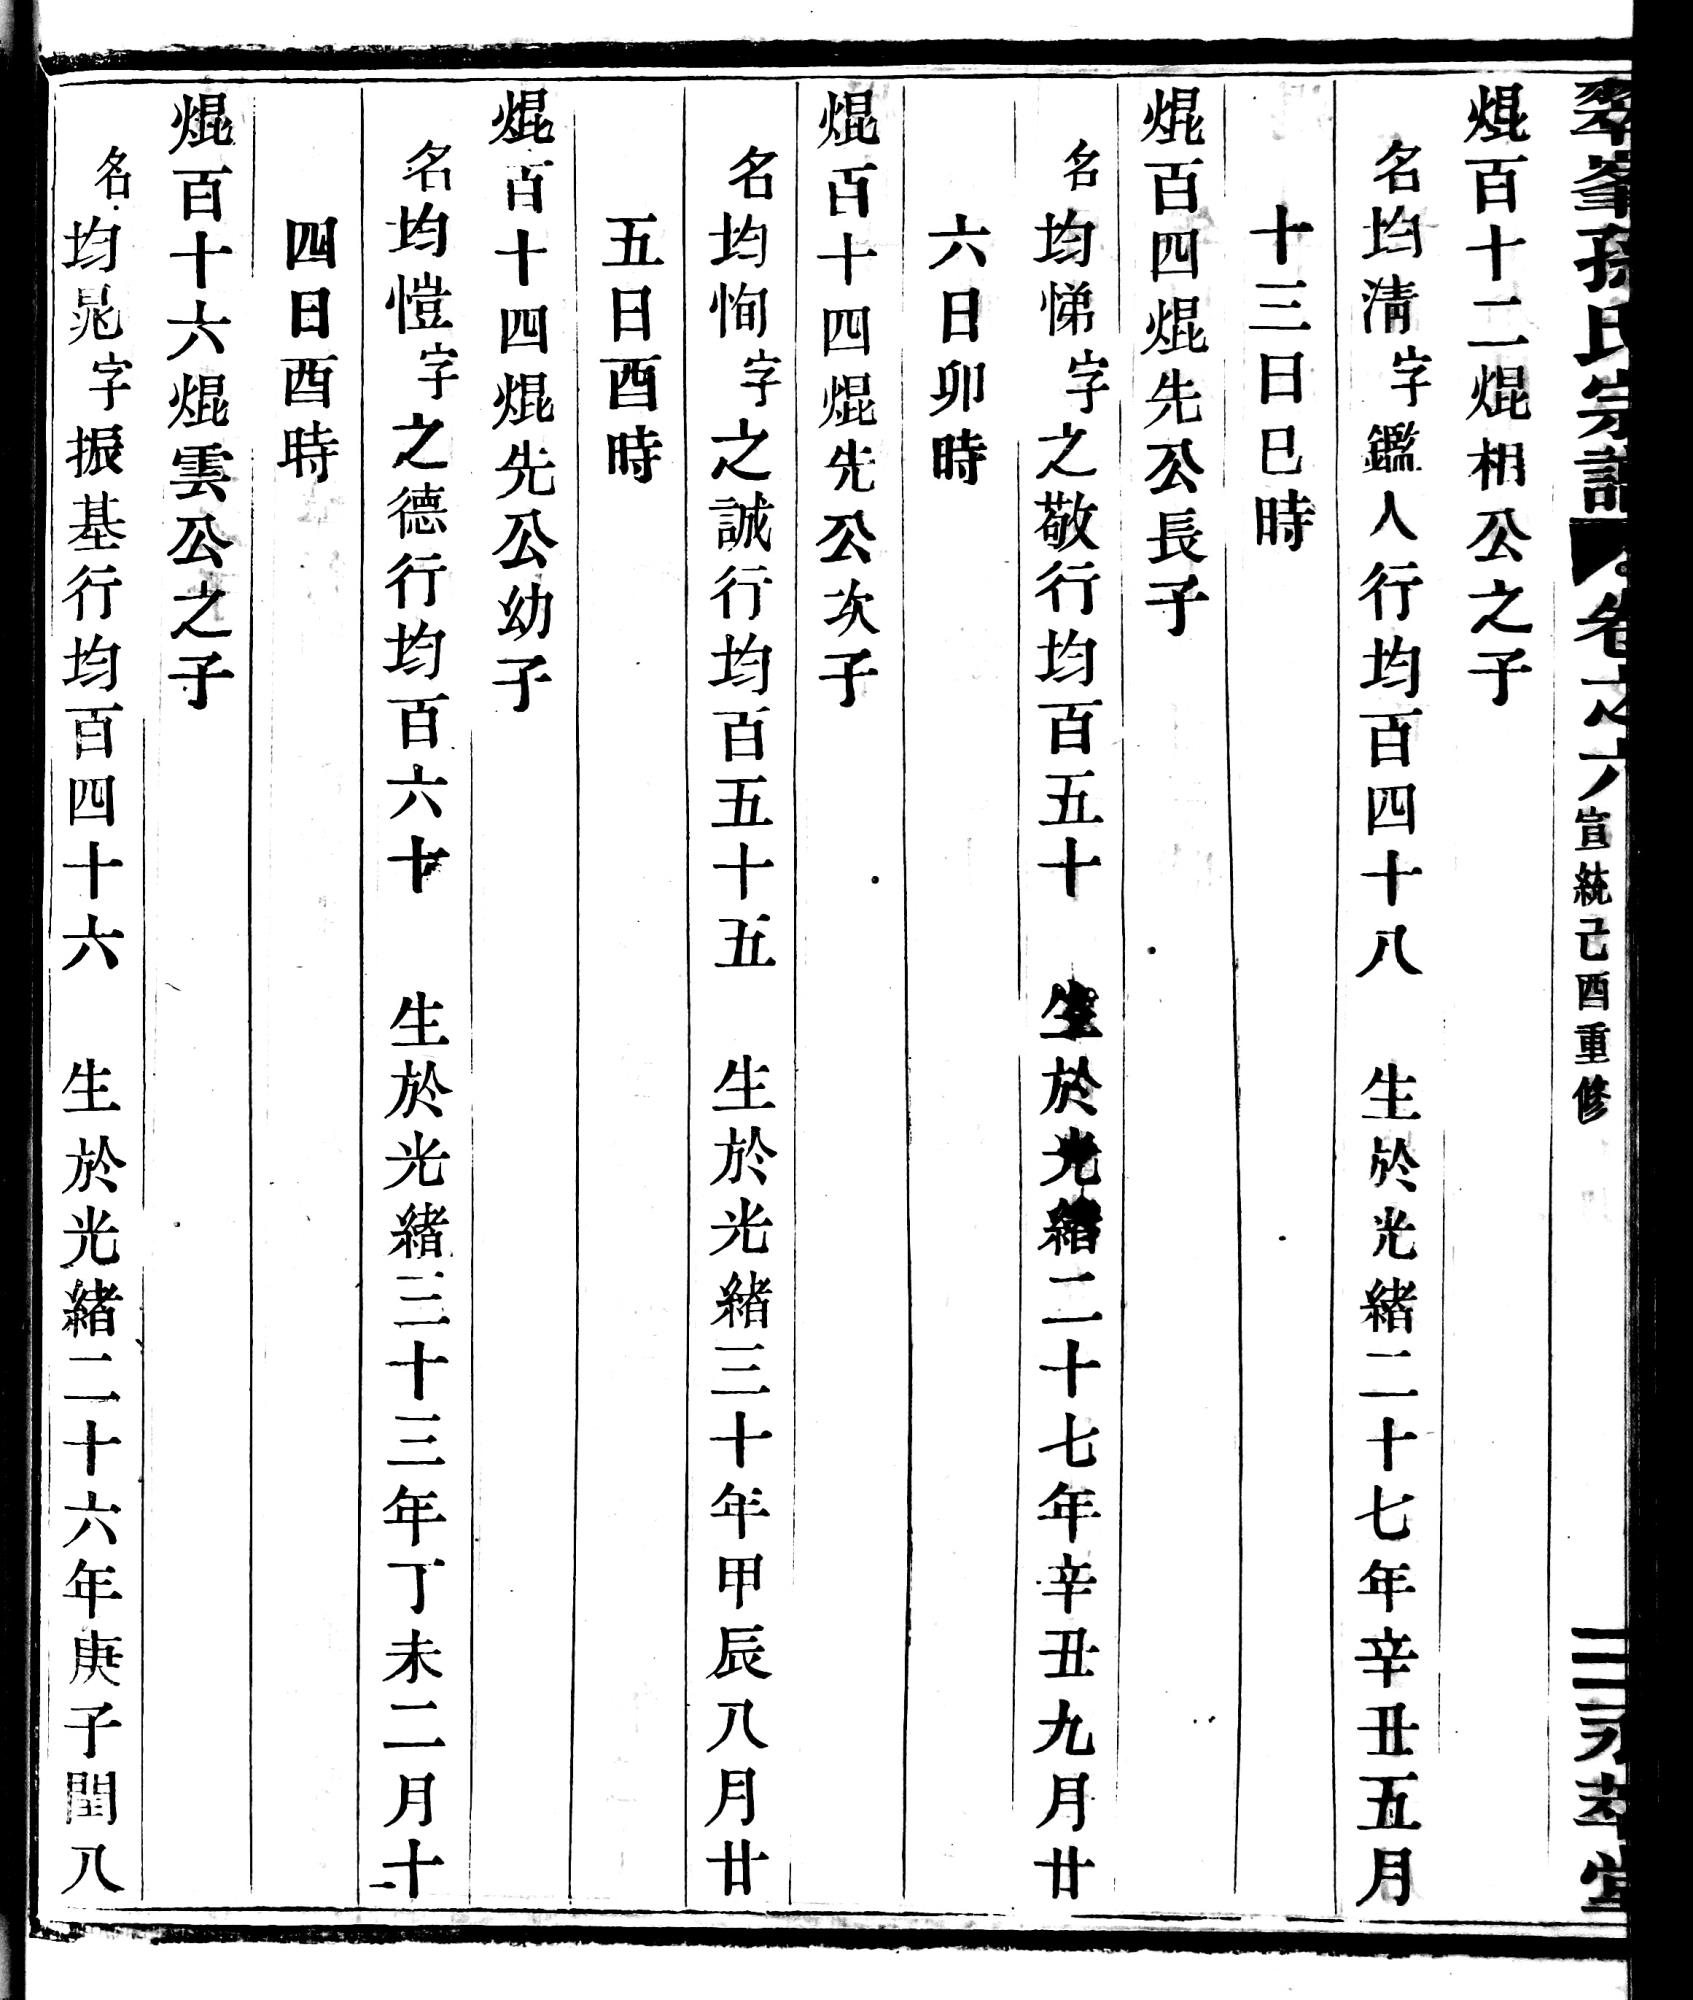 翠峯孫氏宗譜 卷之六 宣統己酉重修 三 永萃堂
焜百十二焜相公之子
名均清字鑑人行均百四十八 生於光緒二十七年辛丑五月
十三日巳時
焜百四焜先公長子
名均悌字之敬行均百五十 生於光緒二十七年辛丑九月廿
六日卯時
焜百十四焜先公次子
名均恂字之誠行均百五十五 生於光緒三十年甲辰八月廿
五日酉時
焜百十四焜先公幼子
名均愷字之德行均百六十 生於光緒三十三年丁未二月十
四日酉時
焜百十六焜雲公之子
名均晁字振基行均百四十六 生於光緒二十六年庚子閏八